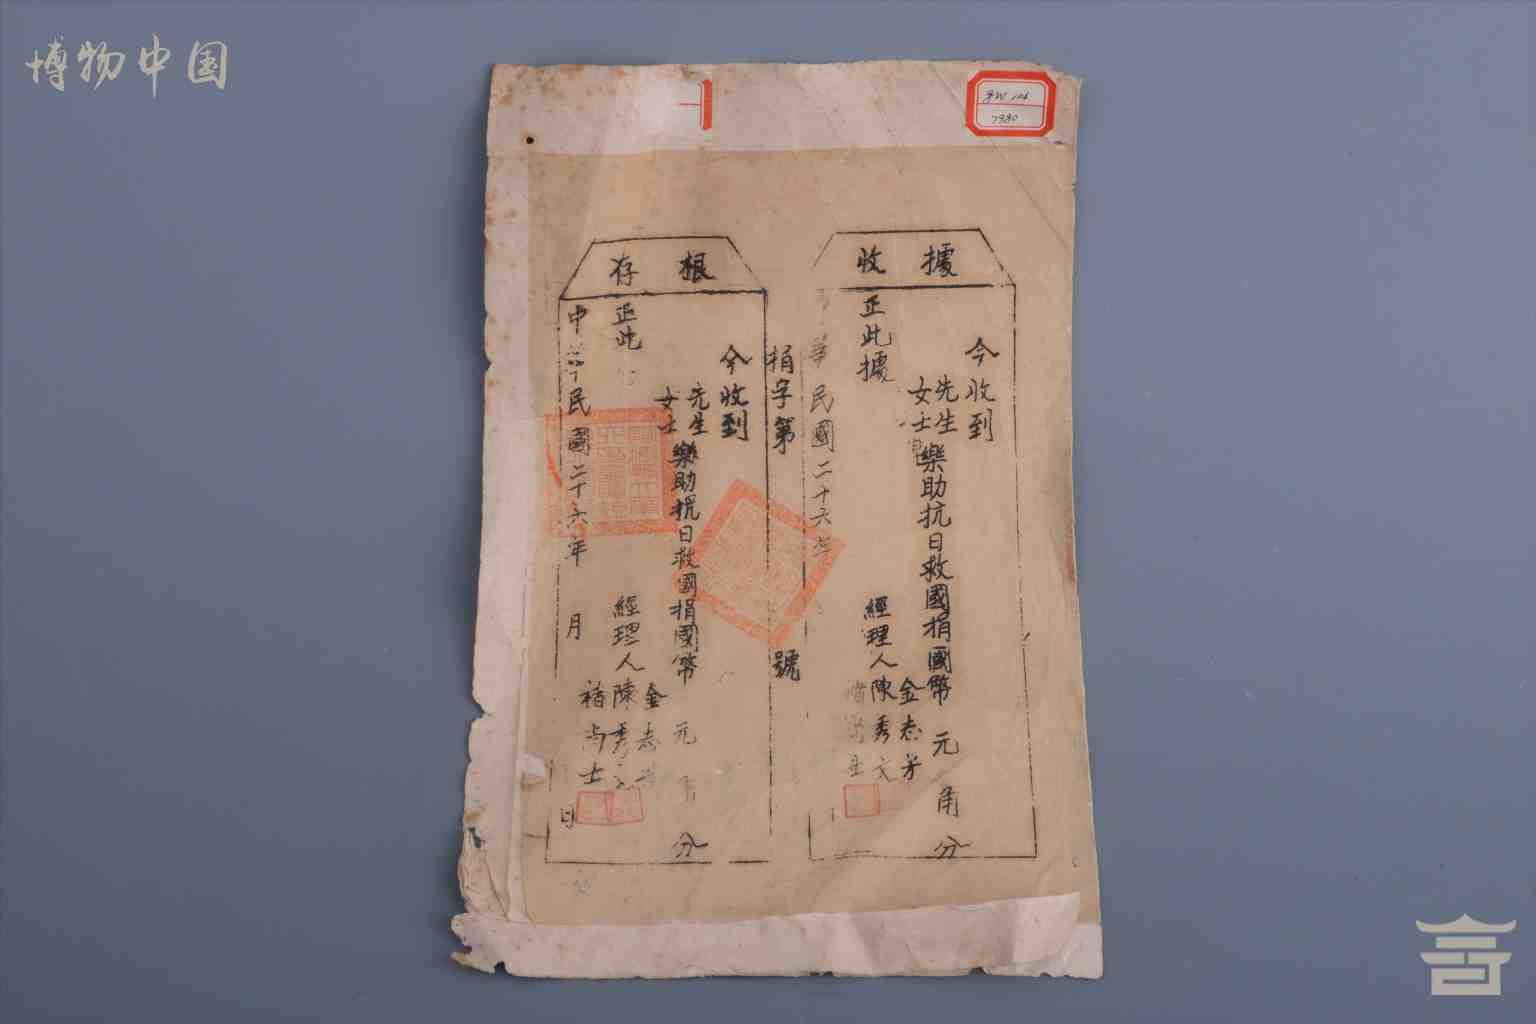 博物中国
gw 104
7980
收據
今收到
先生
女士
樂助抗日救國捐國幣 元 角 分
正此據
經理人
金志芳
陳秀文
華民國二十六年
捐字第 號
存根
今收到
先生
女士
樂助抗日救國捐國幣 元 分
正此
經理人
金志
陳秀文
褚尚士
中華民國二十六年 月 日